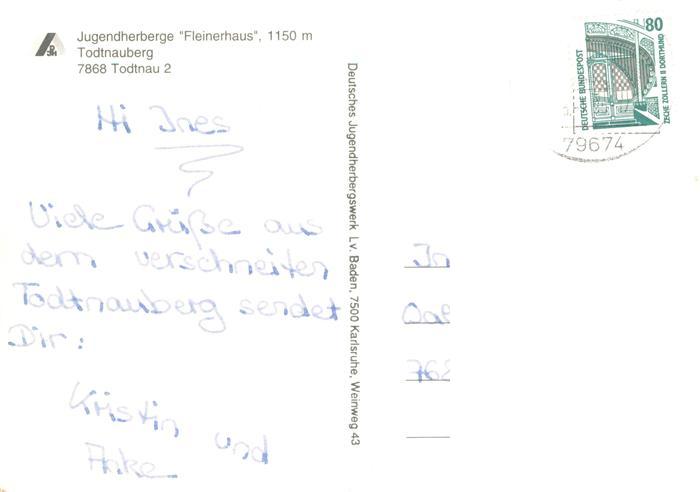 Jugendherberge "Fleinerhaus", 1150 m
Todtnauberg
7868 Todtnau 2
Hi Ines
Viele Grüße aus
dem verschneiten
Todtnauberg sendet
Dir:
Kristin
und
Anke
Deutsches Jugendherbergswerk Lv. Baden, 7500 Karlsruhe, Weinweg 43
80
DEUTSCHE BUNDESPOST
ZECHE ZOLLERN II DORTMUND
79674
In
768